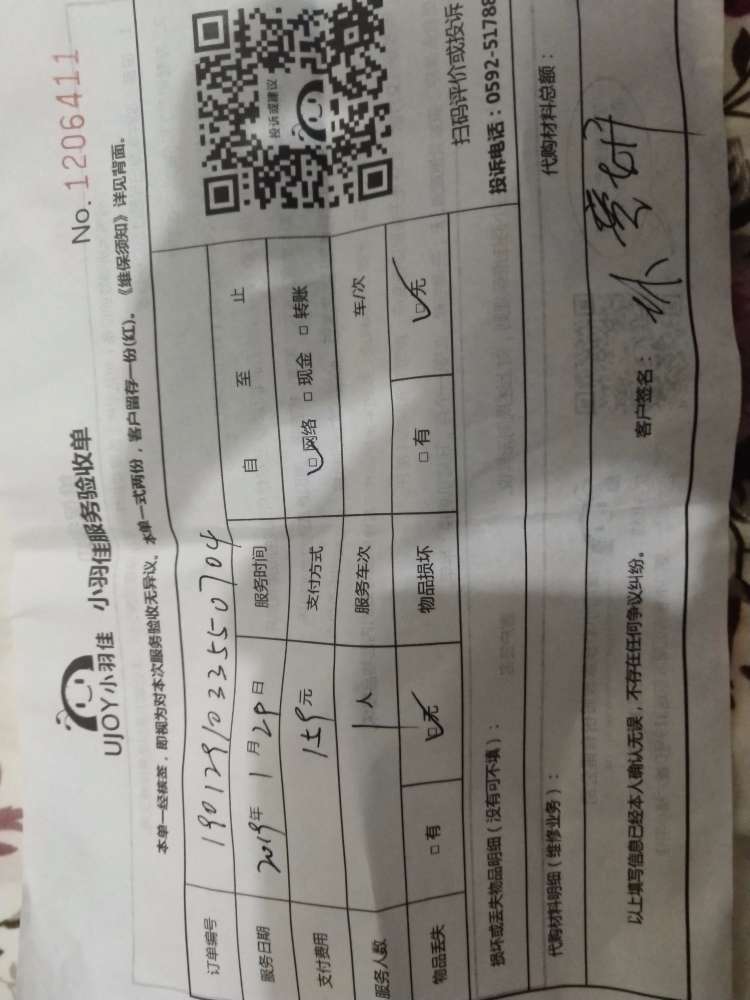 No. 1206411
UJOY小羽佳 小羽佳服务验收单
本单一经核签，即视为对本次服务验收无异议。本单一式两份，客户留存一份(红)。《维保须知》详见背面。
订单编号 1901291033550704
服务日期 2019年 1 月 29 日 服务时间 自 至 止
支付费用 159元 支付方式 □网络 □ 现金 □ 转账
服务人数 1人 服务车次 车/次
物品丢失 □ 有 □无 物品损坏 □ 有 □无
投诉或建议
扫码评价或投诉
投诉电话：0592-51788
损坏或丢失物品明细（没有可不填）：
代购材料明细（维修业务）： 代购材料总额：
以上填写信息已经本人确认无误，不存在任何争议纠纷。 客户签名：